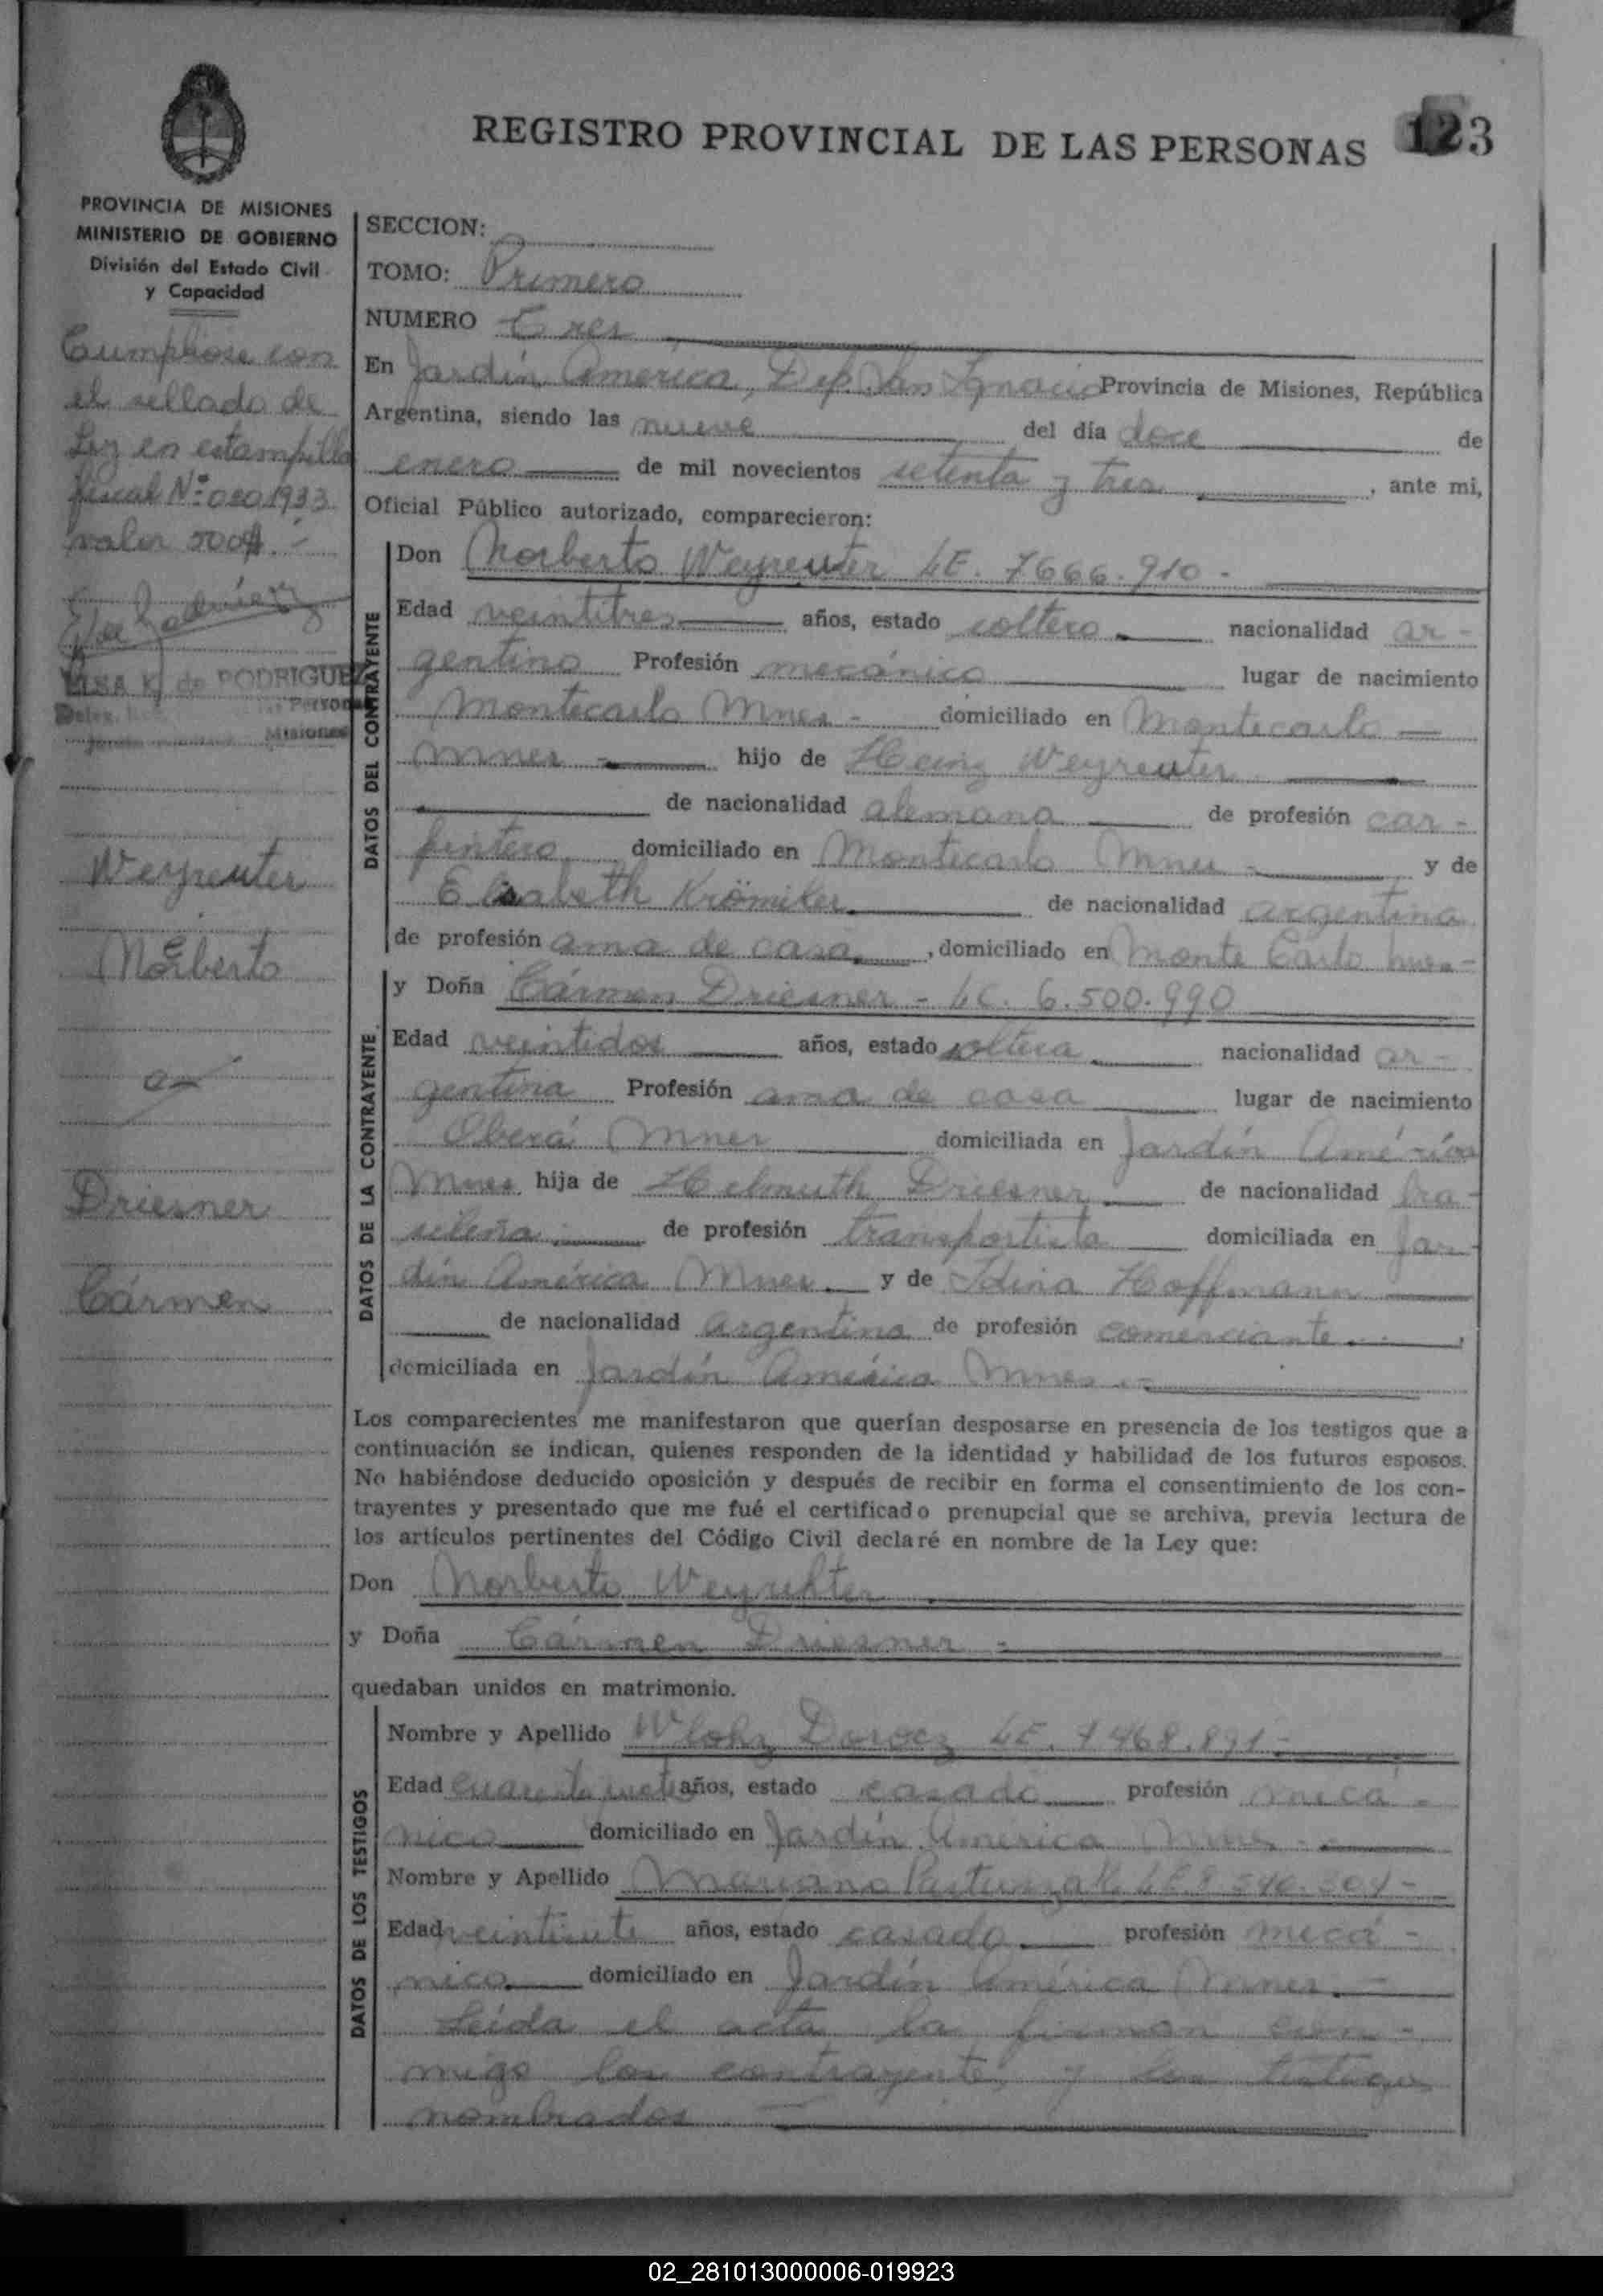 REGISTRO PROVINCIAL DE LAS PERSONAS
123
PROVINCIA DE MISIONES
MINISTERIO DE GOBIERNO
División del Estado Civil
y Capacidad
Cumpliose con
el sellado de
Ley en estampilla
fiscal Nº 0201933
valor 500$.-
de RODRIGUEZ
Misiones
Weyreuter
Norberto
Driesner
Cármen
SECCION:
TOMO: Primero
NUMERO Tres
En Jardín América, Dep. San Ignacio Provincia de Misiones, República
Argentina, siendo las nueve del día doce de
enero de mil novecientos setenta y tres, ante mi,
Oficial Público autorizado, comparecieron:
DATOS DEL CONTRAYENTE
Don Norberto Weyreuter LE. 7666.910.-
Edad veintitres años, estado soltero nacionalidad ar-
gentino Profesión mecánico lugar de nacimiento
Montecarlo Mnes - domiciliado en Montecarlo
Mnes - hijo de Heinz Weyreuter
de nacionalidad alemana de profesión car-
pintero domiciliado en Montecarlo Mnes - y de
Elisabeth Krömiker de nacionalidad argentina
de profesión ama de casa, domiciliado en Monte Carlo
DATOS DE LA CONTRAYENTE
y Doña Cármen Driesner - LC. 6.500.990
Edad veintidos años, estado soltera nacionalidad ar-
gentina Profesión ama de casa lugar de nacimiento
Oberá Mnes domiciliada en Jardín América
Mnes hija de Helmuth Driesner de nacionalidad bra-
sileña de profesión transportista domiciliada en Jar-
dín América Mnes. y de Idina Hoffmann
de nacionalidad argentina de profesión comerciante,
domiciliada en Jardín América Mnes.-
Los comparecientes me manifestaron que querían desposarse en presencia de los testigos que a
continuación se indican, quienes responden de la identidad y habilidad de los futuros esposos.
No habiéndose deducido oposición y después de recibir en forma el consentimiento de los con-
trayentes y presentado que me fué el certificado prenupcial que se archiva, previa lectura de
los artículos pertinentes del Código Civil declaré en nombre de la Ley que:
Don Norberto
y Doña Cármen Driesner -
quedaban unidos en matrimonio.
DATOS DE LOS TESTIGOS
Nombre y Apellido LE. 7468.891-
Edad cuarenta años, estado casado profesión mecá-
nico domiciliado en Jardín América Mnes -
Nombre y Apellido Mariano
Edad veintisiete años, estado casado profesión mecá-
nico domiciliado en Jardín América Mnes.-
Leída el acta la firman con-
migo los contrayentes y los testigos
nombrados.-
02_281013000006-019923